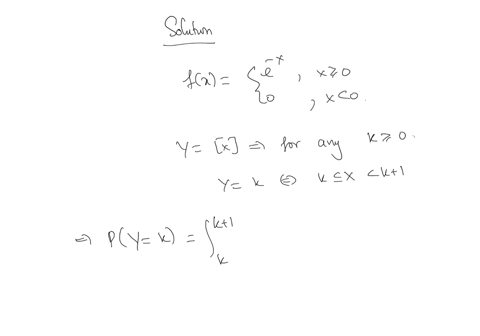 Solution
f(x) = { e^-x , x ≥ 0
0 , x < 0.
Y = [x] ⇒ for any k ≥ 0.
Y = k ⇔ k ≤ X < k+1
⇒ P(Y = k) = ∫_k^{k+1}